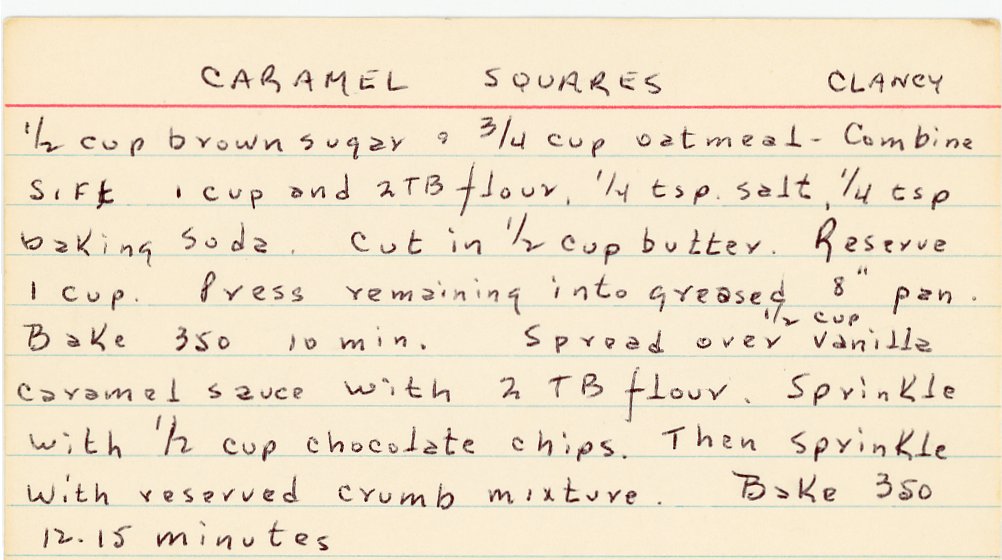 CARAMEL SQUARES CLANCY
1/2 cup brown sugar & 3/4 cup oatmeal - Combine
Sift 1 cup and 2 TB flour, 1/4 tsp. salt, 1/4 tsp
baking soda. Cut in 1/2 cup butter. Reserve
1 cup. Press remaining into greased 8" pan.
Bake 350 10 min. Spread over 1/2 cup vanilla
caramel sauce with 2 TB flour. Sprinkle
with 1/2 cup chocolate chips. Then sprinkle
with reserved crumb mixture. Bake 350
12-15 minutes